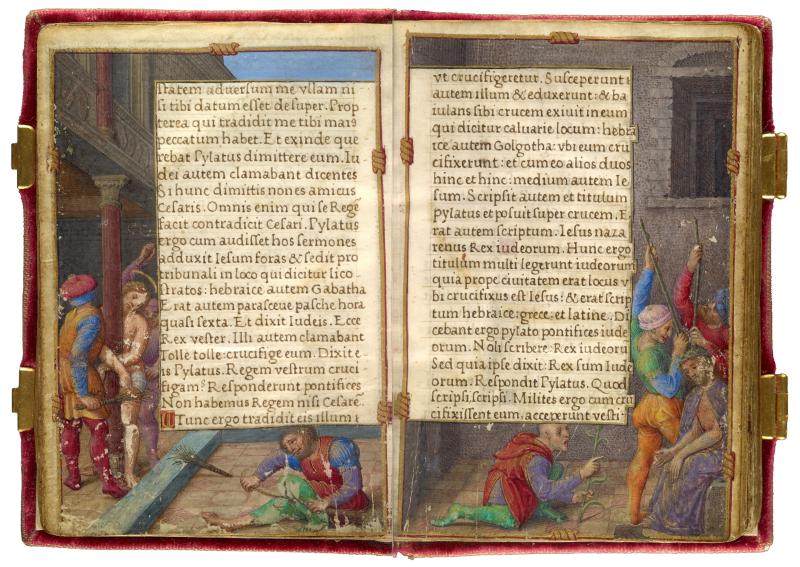 statem adversum me vllam ni
si tibi datum esset desuper. Prop
terea qui tradidit me tibi maiꝰ
peccatum habet. Et exinde que
rebat Pylatus dimittere eum. Iu
dei autem clamabant dicentes
Si hunc dimittis non es amicus
Cesaris. Omnis enim qui se Regē
facit contradicit Cesari. Pylatus
ergo cum audisset hos sermones
adduxit Iesum foras & sedit pro
tribunali in loco qui dicitur lico
stratos: hebraice autem Gabatha
Erat autem parasceue pasche hora
quasi sexta. Et dixit Iudeis. Ecce
Rex vester. Illi autem clamabant
Tolle tolle: crucifige eum. Dixit e
is Pylatus. Regem vestrum cruci
figamꝰ Responderunt pontifices
Non habemus Regem nisi Cesarē
Tunc ergo tradidit eis illum
vt crucifigeretur. Susceperunt
autem illum & eduxerunt: & ba
iulans sibi crucem exiuit in eum
qui dicitur caluarie locum: hebra
ice autem Golgotha: vbi eum cru
cifixerunt: et cum eo alios duos
hinc et hinc: medium autem Ie
sum. Scripsit autem et titulum
pylatus et posuit super crucem. E
rat autem scriptum. Iesus naza
renus Rex iudeorum. Hunc ergo
titulum multi legerunt iudeorum
quia prope ciuitatem erat locus v
bi crucifixus est Iesus: & erat scrip
tum hebraice: grece: et latine. Di
cebant ergo pylato pontifices iude
orum. Noli scribere: Rex iudeoru
Sed quia ipse dixit: Rex sum Iude
orum. Respondit Pylatus. Quod
scripsi, scripsi. Milites ergo cum cru
cifixissent eum, acceperunt vesti